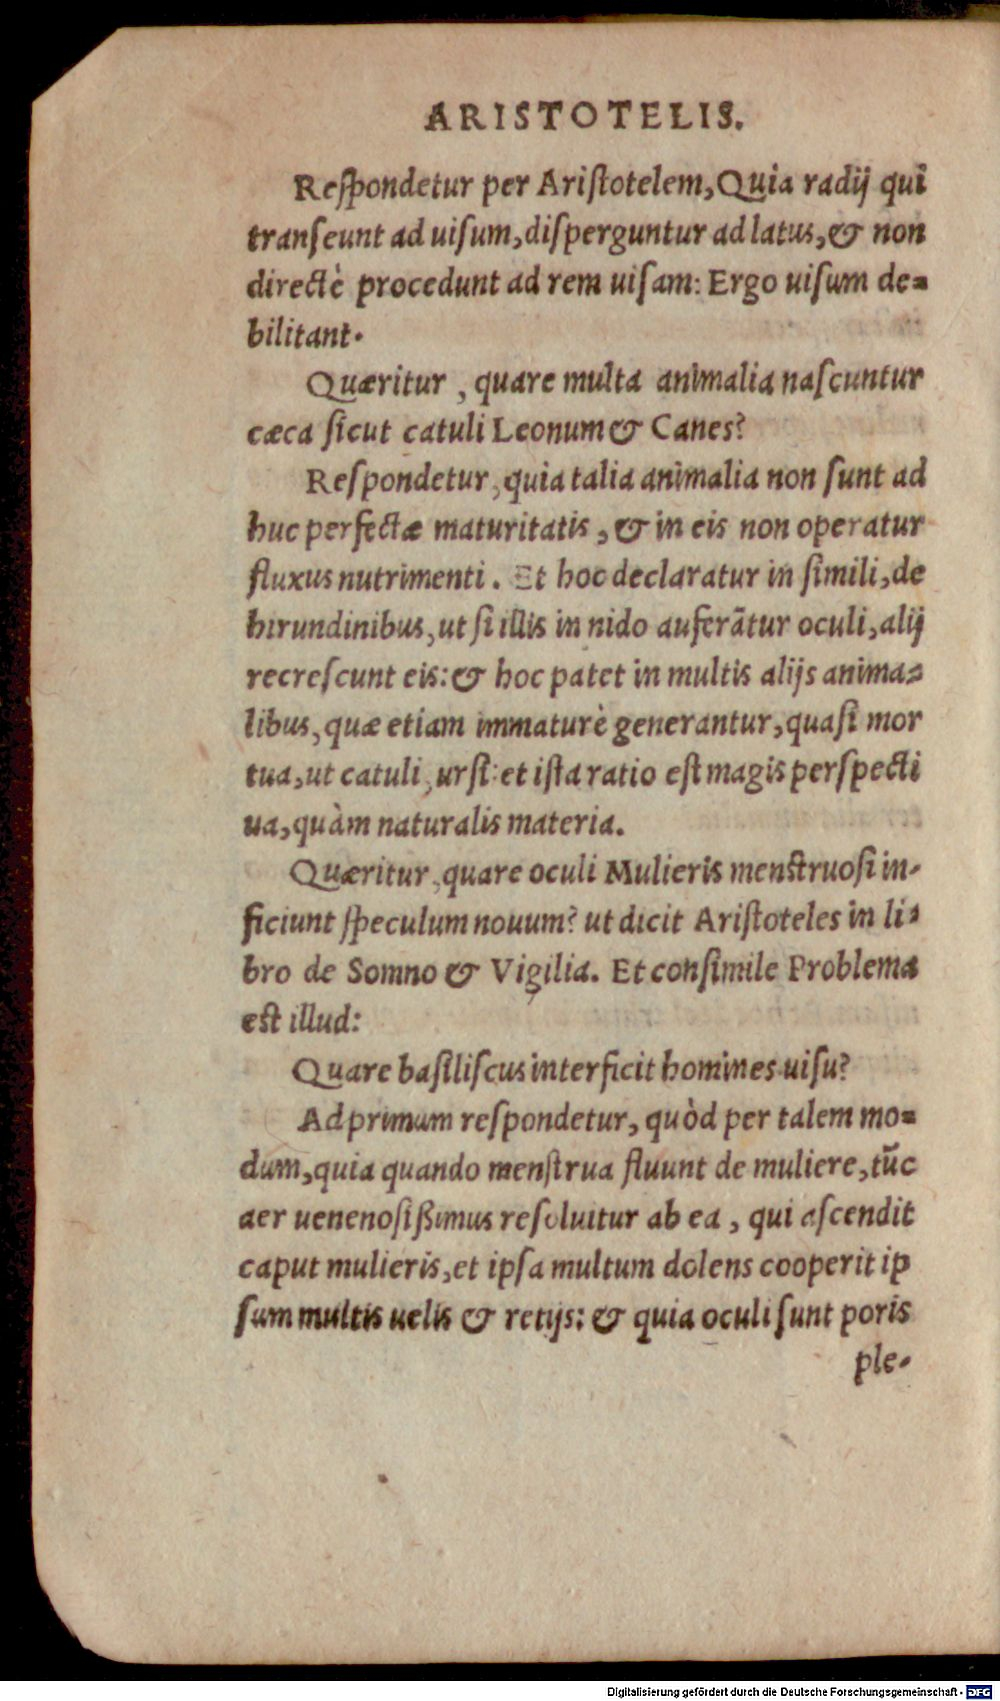 ARISTOTELIS.
Reſpondetur per Ariſtotelem, Quia radij qui
tranſeunt ad uiſum, diſperguntur ad latus, & non
directè procedunt ad rem uiſam: Ergo uiſum de-
bilitant.
Quæritur, quare multa animalia naſcuntur
cæca ſicut catuli Leonum & Canes?
Reſpondetur, quia talia animalia non ſunt ad
huc perfectæ maturitatis, & in eis non operatur
fluxus nutrimenti. Et hoc declaratur in ſimili, de
hirundinibus, ut ſi illis in nido auferãtur oculi, alij
recreſcunt eis: & hoc patet in multis alijs anima-
libus, quæ etiam immaturè generantur, quaſi mor
tua, ut catuli, urſi: et iſta ratio eſt magis perſpecti
ua, quàm naturalis materia.
Quæritur, quare oculi Mulieris menſtruoſi in-
ficiunt ſpeculum nouum? ut dicit Ariſtoteles in li-
bro de Somno & Vigilia. Et conſimile Problema
eſt illud:
Quare baſiliſcus interficit homines uiſu?
Ad primum reſpondetur, quòd per talem mo-
dum, quia quando menſtrua fluunt de muliere, tũc
aer uenenoſißimus reſoluitur ab ea, qui aſcendit
caput mulieris, et ipſa multum dolens cooperit ip
ſum multis uelis & retijs: & quia oculi ſunt poris
ple-
Digitalisierung gefördert durch die Deutsche Forschungsgemeinschaft - DFG